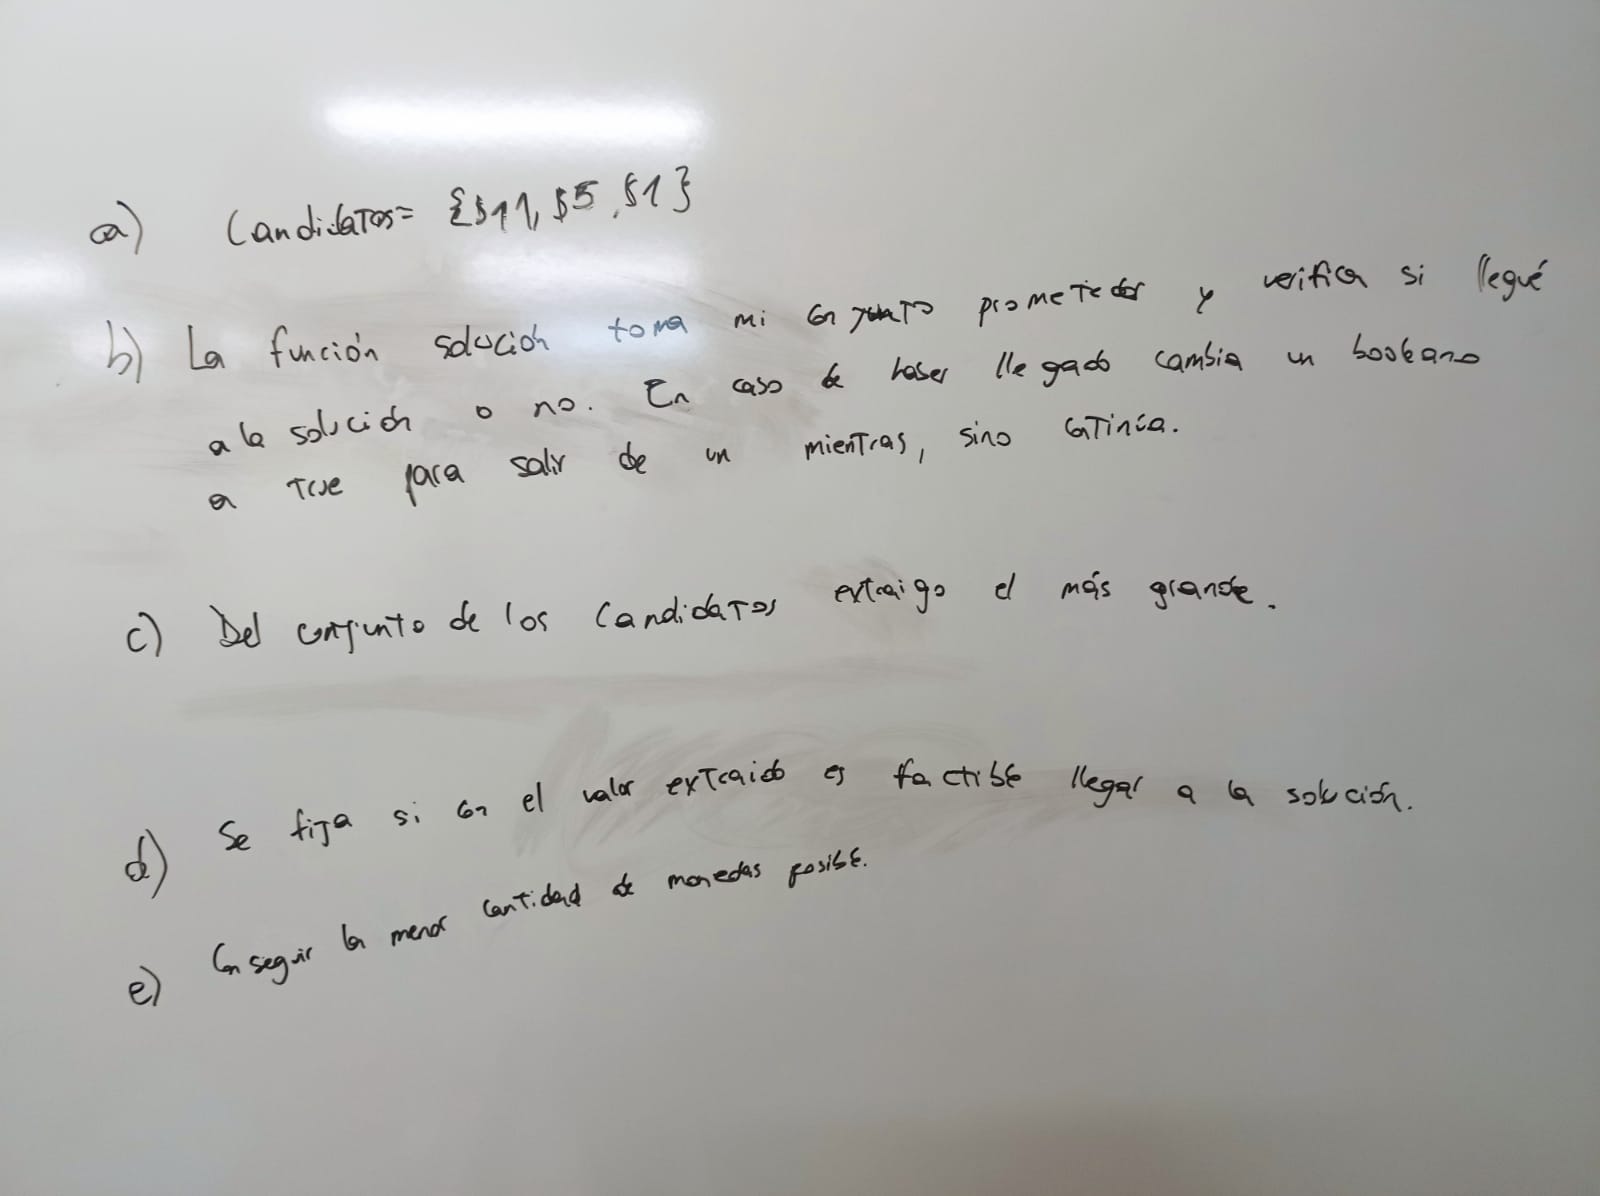 a) Candidatos= {$11, $5, $1}
b) La función solución toma mi conjunto prometedor y verifica si llegué
a la solución o no. En caso de haber llegado cambia un booleano
a true para salir de un mientras, sino continúa.
c) Del conjunto de los candidatos extraigo el más grande.
d) Se fija si con el valor extraido es factible llegar a la solución.
e) Conseguir la menor cantidad de monedas posible.